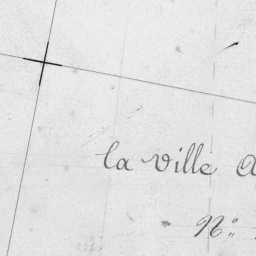 la ville
N°